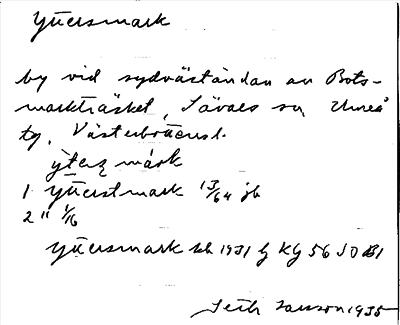 Yttersmark
by vid sydväständan av Bots-
markträsket, Sävars sn, Umeå
tg, Västerbottensl.
yterṣ mark
1 Ytterstmark 13/64 jb
2 " 1/16
Yttersmark kb 1931 Kg 56 SO B1
Seth Jansson 1935